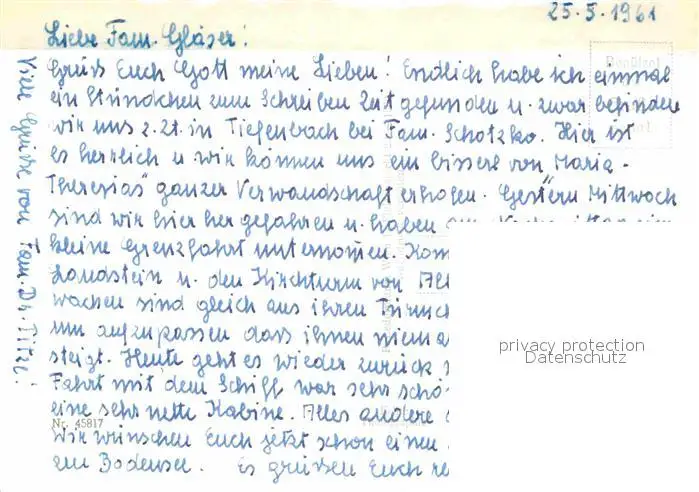 25.5.1961
Liebe Fam. Gläser!
Grüss Euch Gott meine Lieben! Endlich habe ich einmal
ein Stündchen zum Schreiben Zeit gefunden u. zwar befinden
wir uns z. Zt. in Tiefenbach bei Fam. Schotzko. Hier ist
es herrlich u. wir können uns ein bisserl von „Maria-
Theresias" ganzer Verwandschaft erholen. Gestern Mittwoch
sind wir hier her gefahren u. haben
kleine Grenzfahrt unternommen.
Landstein u. den Kirchturm von
wachen sind gleich aus ihren
um aufzupassen dass ihnen
steigt. Heute geht es wieder zurück
Fahrt mit dem Schiff war sehr
eine sehr nette Kabine. Alles andere
Wir wünschen Euch jetzt schon einen
am Bodensee. Es grüssen Euch
Viele Grüsse von Fam. Dr. Titze!
Nr. 45817
privacy protection
Datenschutz